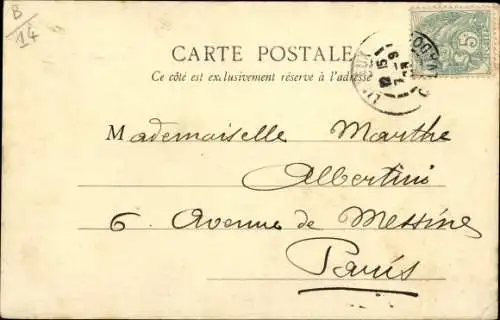 B
14
CARTE POSTALE
Ce côté est exclusivement réservé à l'adresse
Mademoiselle Marthe
Albertini
6. Avenue de Messine
Paris